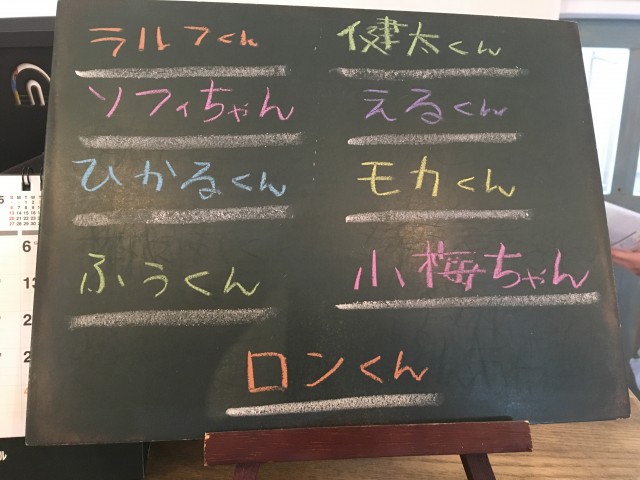 ラルフくん
健太くん
ソフィちゃん
えるくん
ひかるくん
モカくん
ふうくん
小梅ちゃん
ロンくん